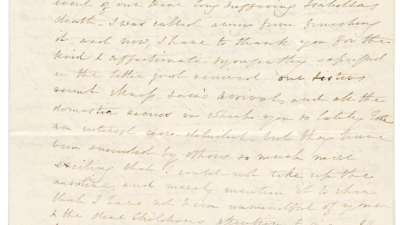 event of our Dear long suffering Isabellas
death. I was called away from finishing
it, and now, I have to thank you for the
kind & affectionate sympathy expressed
in the letter just received our Sisters
arrival, and all the
domestic scenes in which you so lately took
an interest were detailed, but they have
been succeeded by others so much more
exciting that I could not take up the
narrative, and merely mention it to show
that I have not been unmindful of you
& the dear Childrens attention